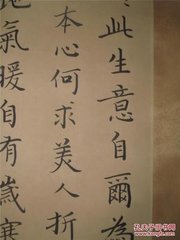 此生意自爾為
本心何求美人折
地氣暖自有歲寒
孔夫子旧书网